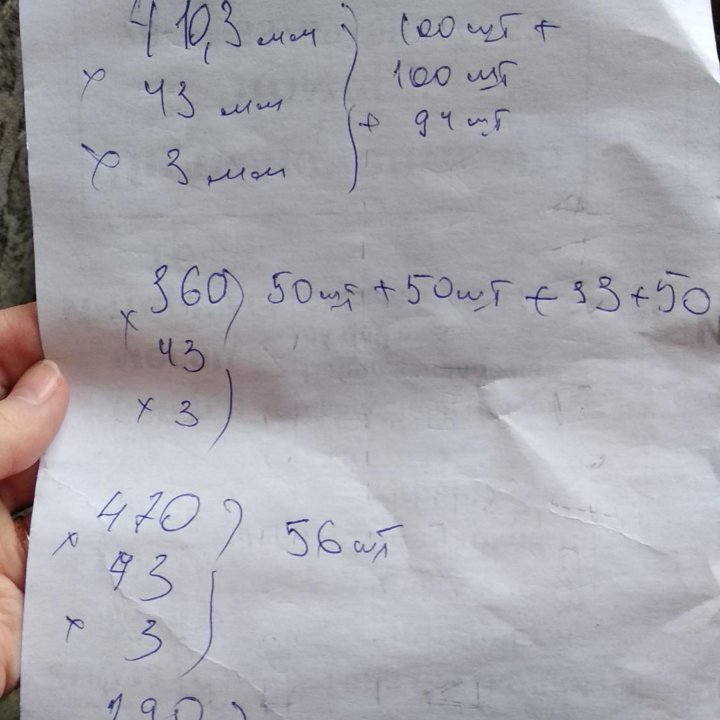 410,3 мм ) 100 шт +
× 43 мм 100 шт
× 3 мм + 94 шт
360 ) 50 шт + 50 шт + 33 + 50
× 43
× 3 )
470 ) 56 шт
× 43
× 3 )
190 )